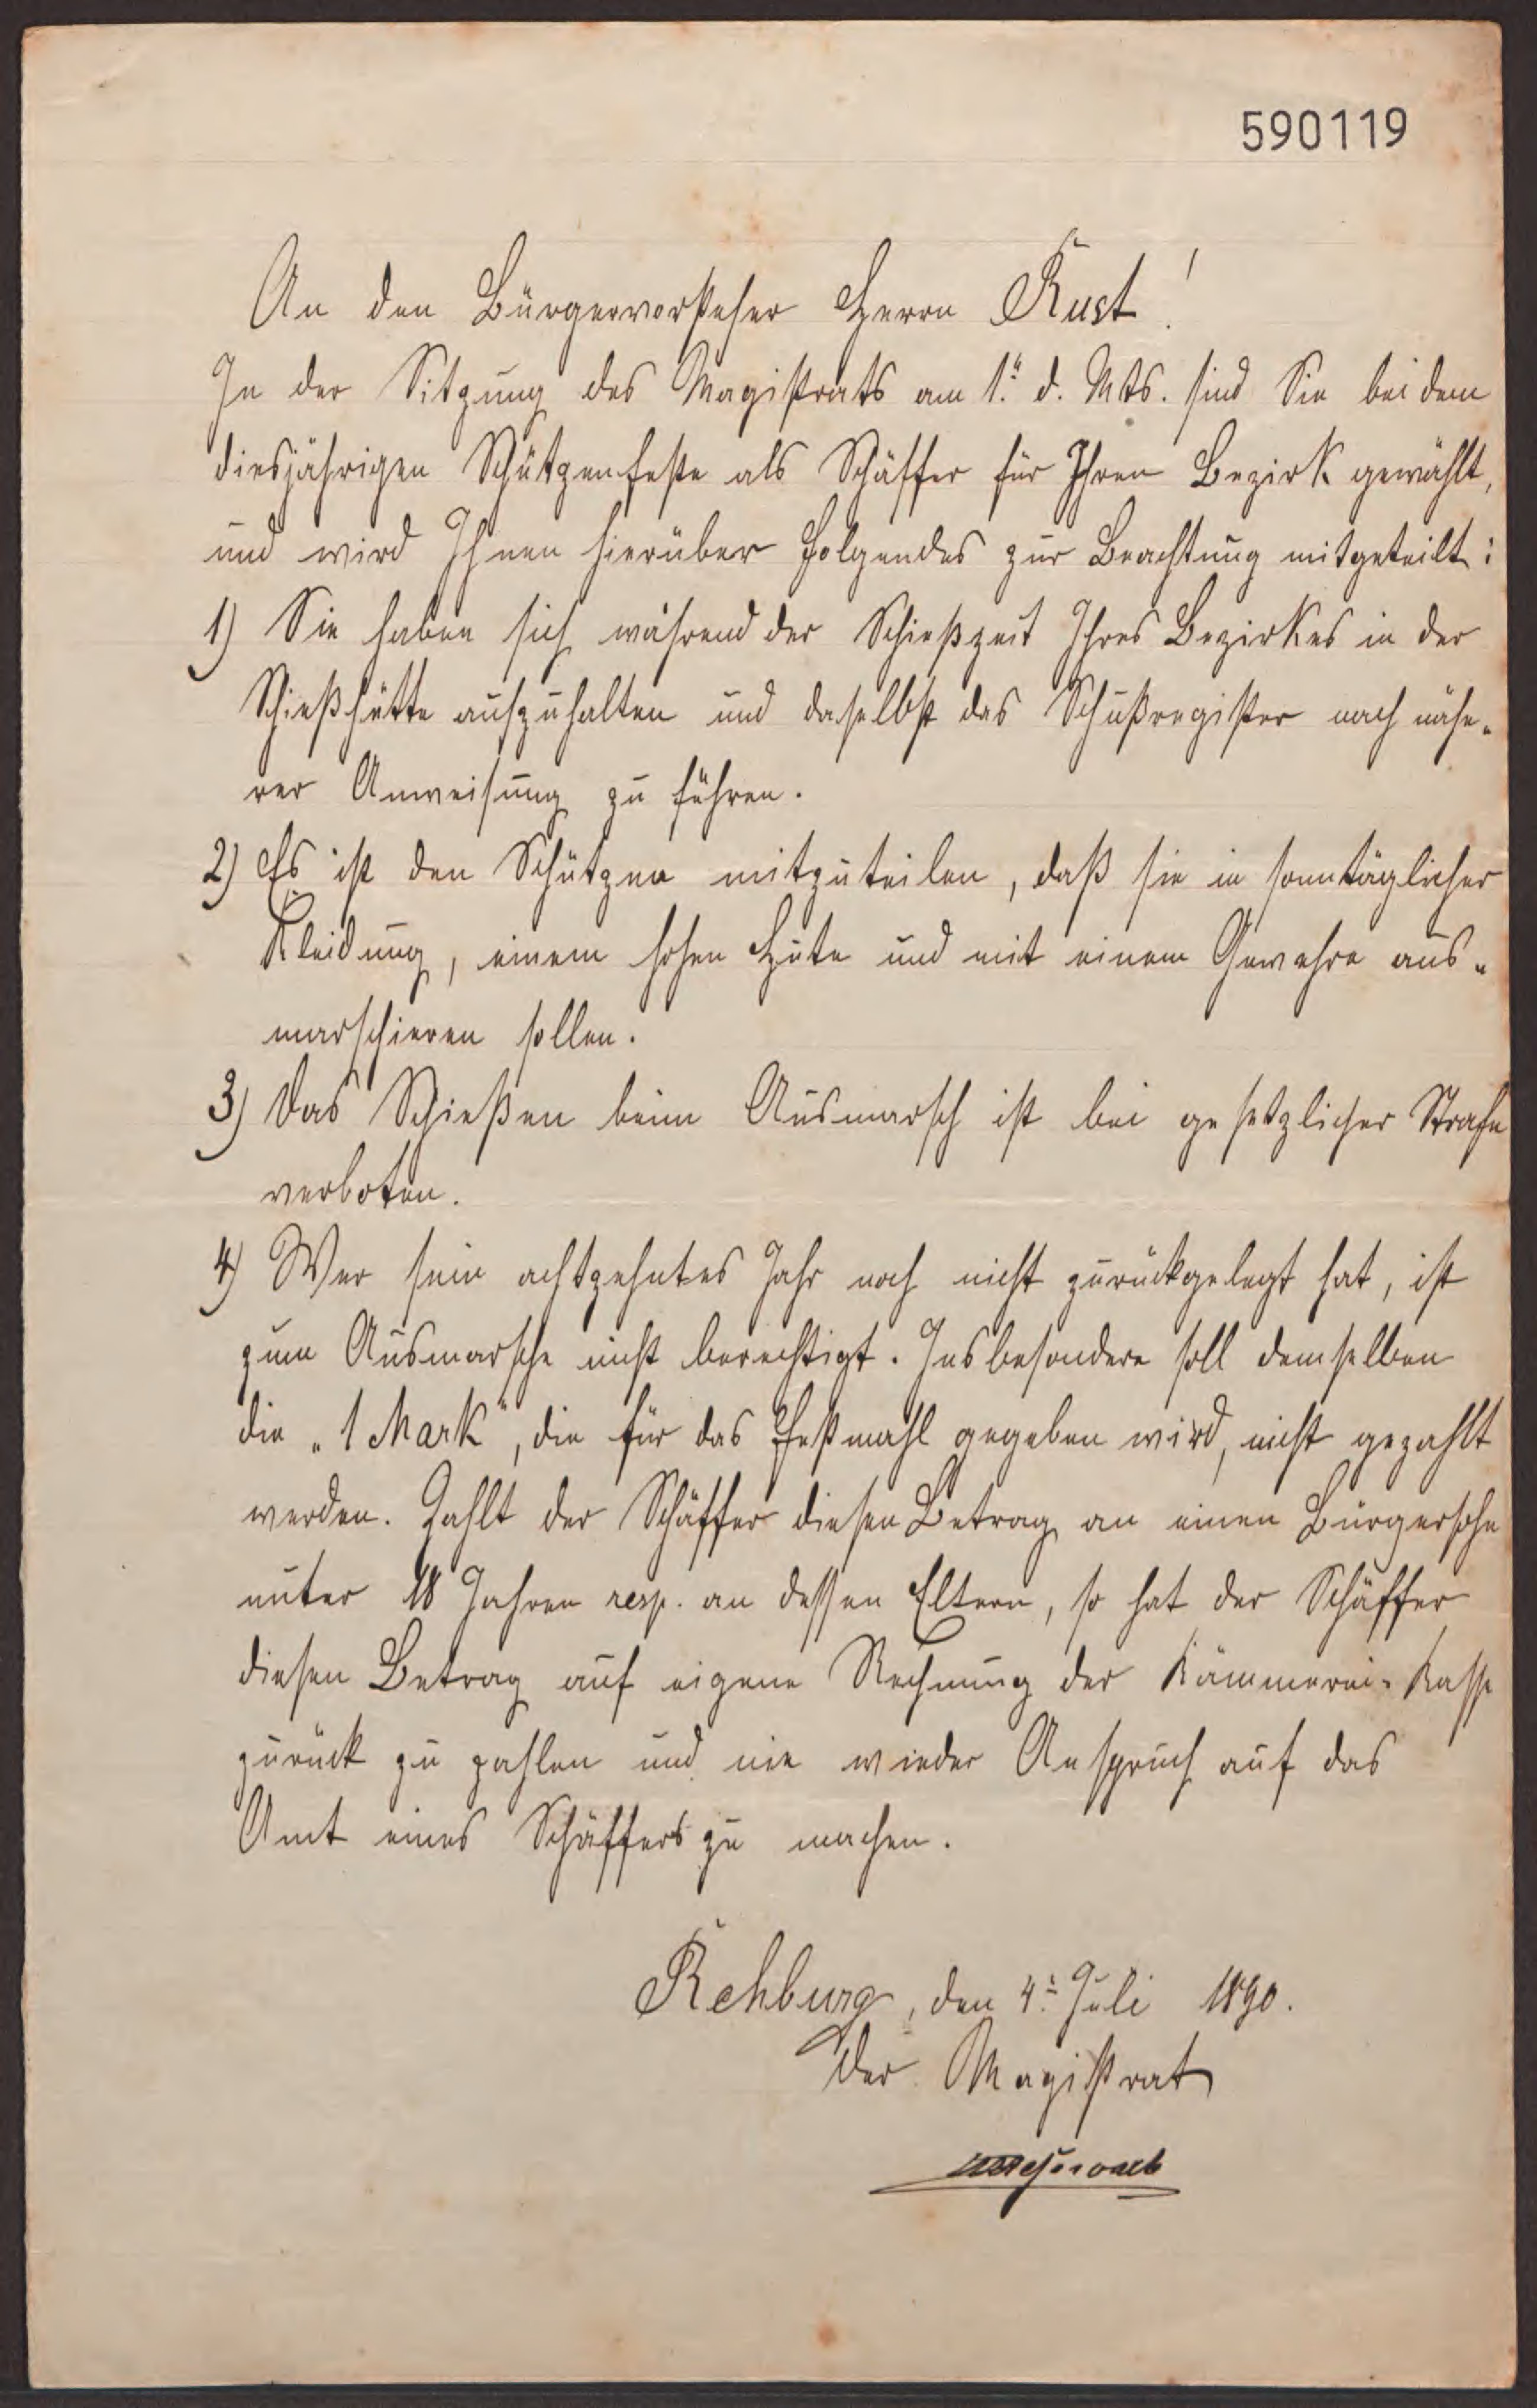 590119
An den Bürgervorsteher Herrn Rust!
In der Sitzung des Magistrats am 1. d. Mts. sind Sie bei dem
diesjährigen Schützenfeste als Schäffer für Ihren Bezirk gewählt,
und wird Ihnen hierüber Folgendes zur Beachtung mitgeteilt:
1) Sie haben sich während der Schießzeit Ihres Bezirkes in der
Schießhütte aufzuhalten und daselbst das Schußregister nach nähe-
rer Anweisung zu führen.
2) Es ist den Schützen mitzuteilen, daß sie in sonntäglicher
Kleidung, einem hohen Hute und mit einem Gewehre aus-
marschieren sollen.
3) Das Schießen beim Ausmarsch ist bei gesetzlicher Strafe
verboten.
4) Wer sein achtzehntes Jahr noch nicht zurückgelegt hat, ist
zum Ausmarsche nicht berechtigt. Insbesondere soll demselben
die „1 Mark", die für das Festmahl gegeben wird, nicht gezahlt
werden. Zahlt der Schäffer diesen Betrag an einen Bürgersohn
unter 18 Jahren resp. an dessen Eltern, so hat der Schäffer
diesen Betrag auf eigene Rechnung der Kämmerei-Kasse
zurück zu zahlen und nie wieder Anspruch auf das
Amt eines Schäffers zu machen.
Rehburg, den 4. Juli 1890.
Der Magistrat